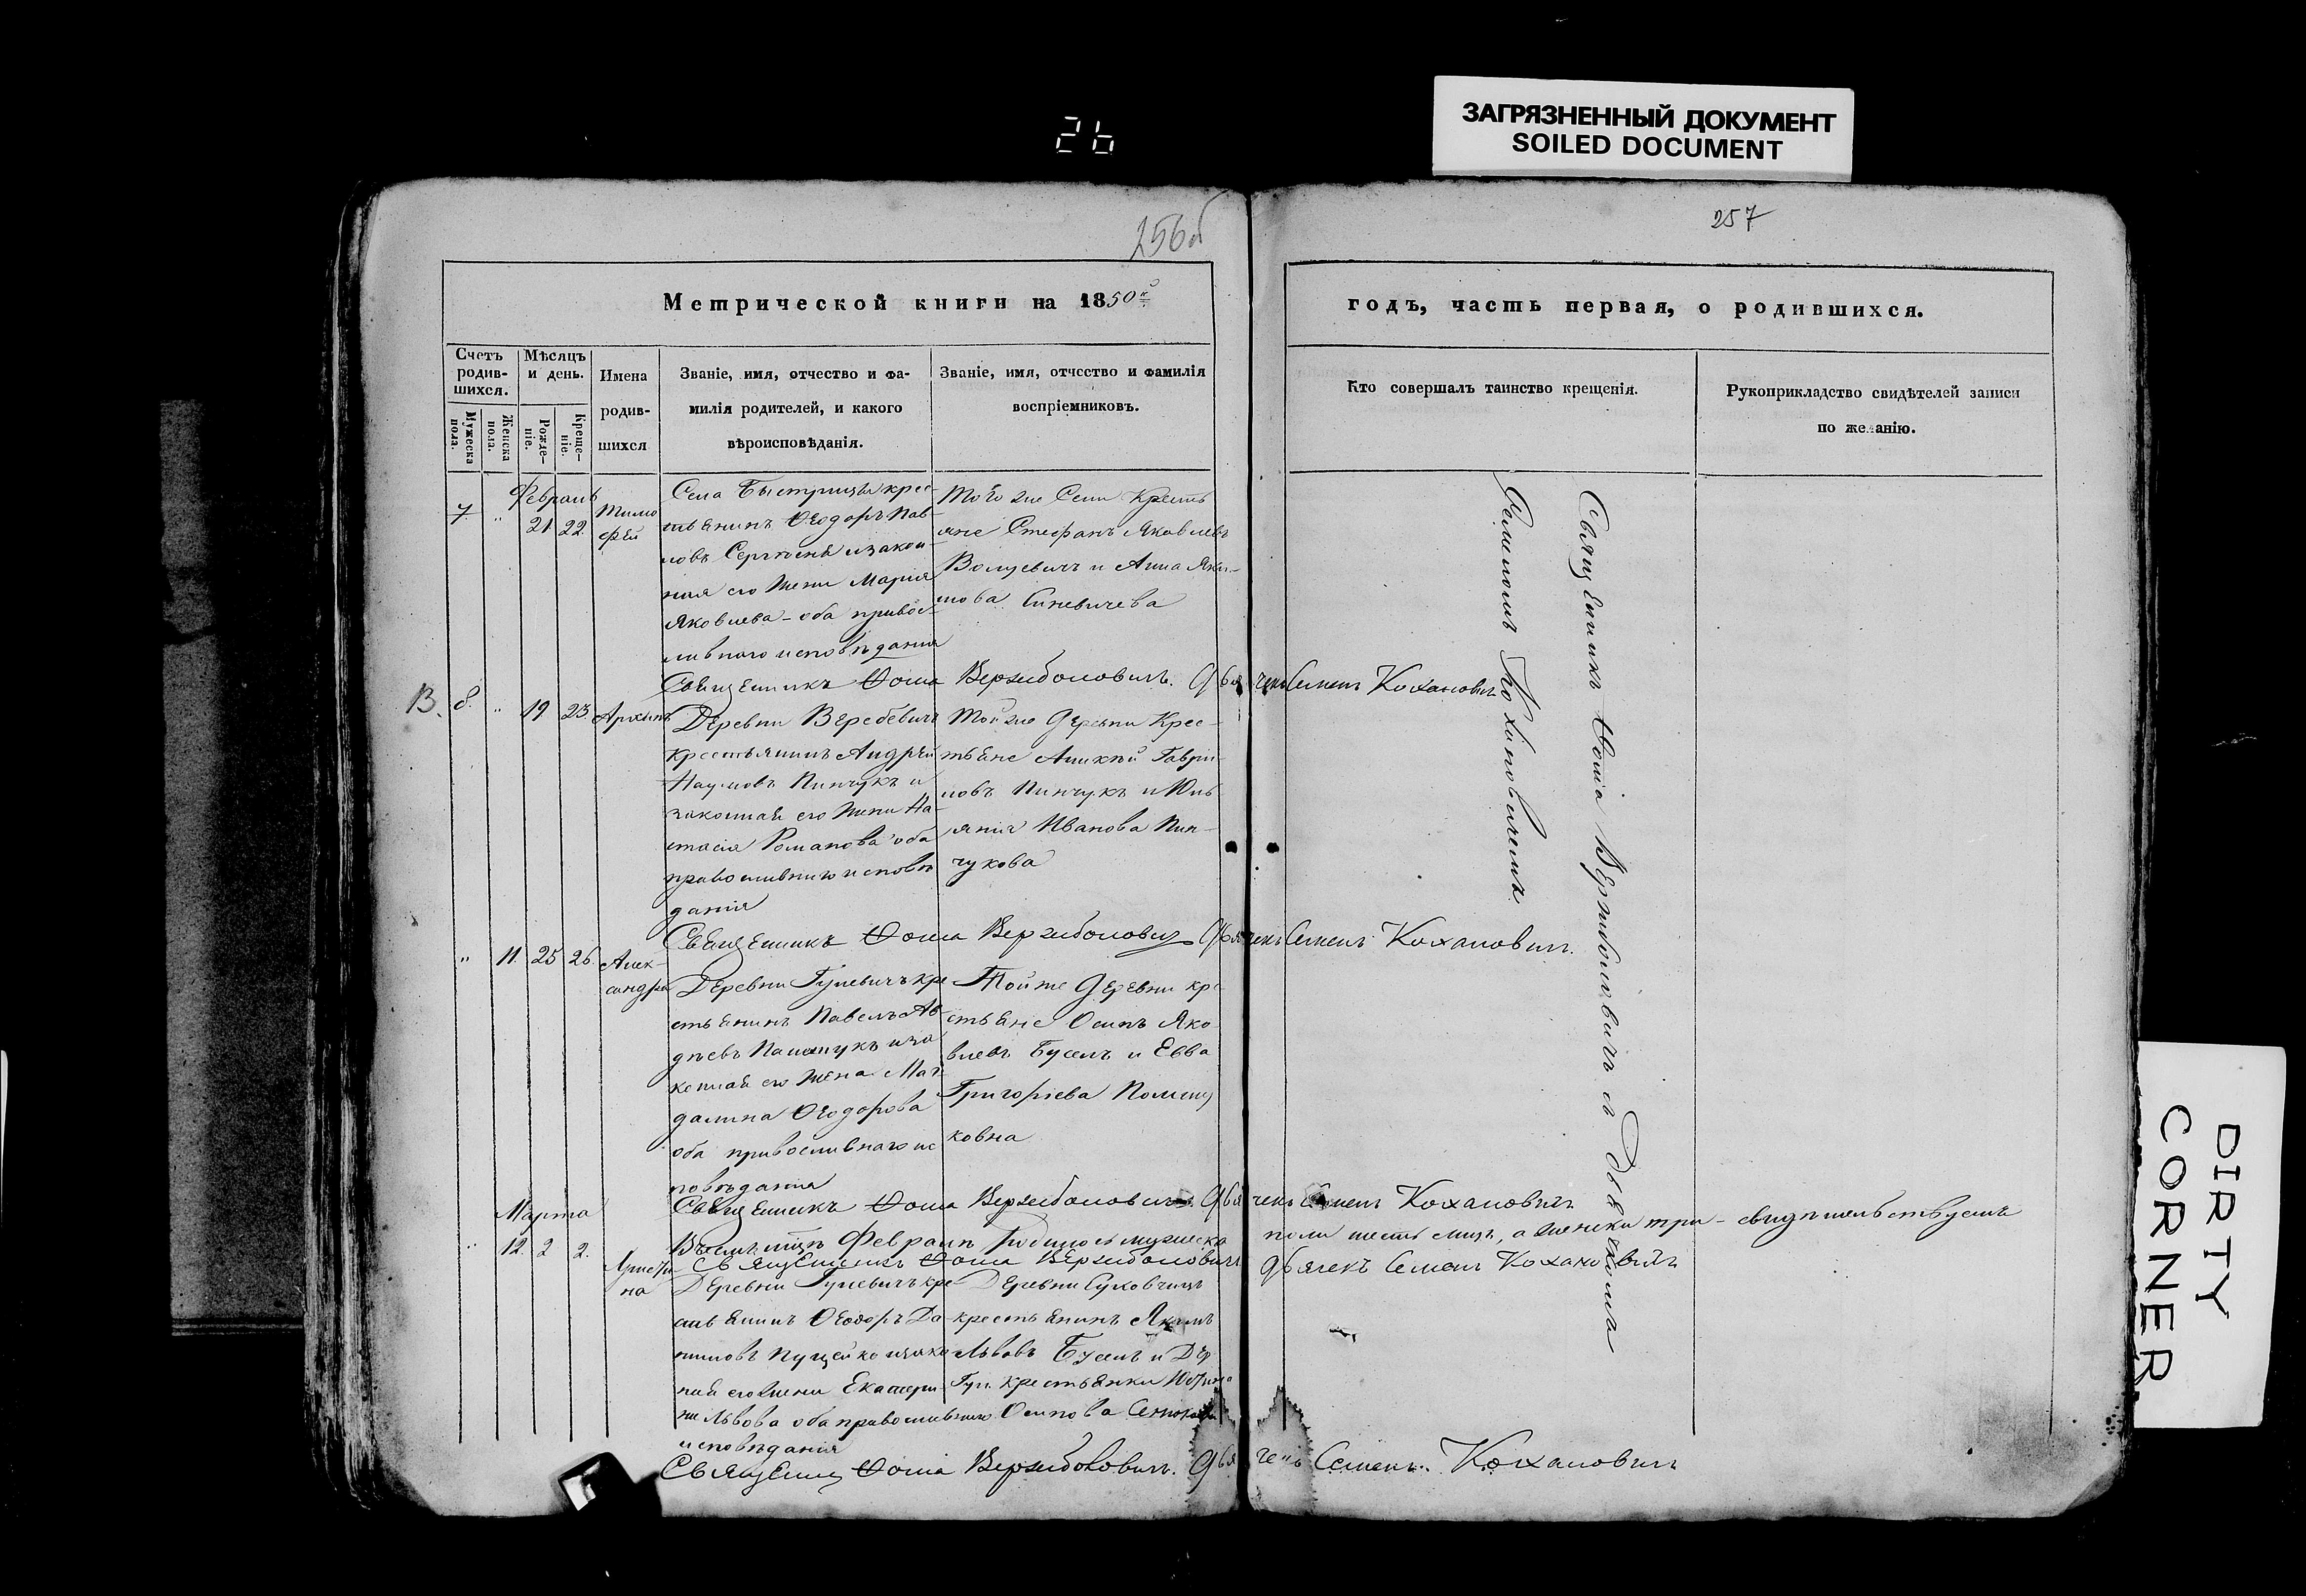 26
ЗАГРЯЗНЕННЫЙ ДОКУМЕНТ
SOILED DOCUMENT
256об
257
Метрической книги на 1850й
годъ, часть первая, о родившихся.
Счетъ родив-шихся.
Мужеска пола.
Женска пола.
Мѣсяцъ и день.
Рожде-ніе.
Креще-ніе.
Имена
родив-
шихся
Званіе, имя, отчество и фа-
милія родителей, и какого
вѣроисповѣданія.
Званіе, имя, отчество и фамилія
воспріемниковъ.
Кто совершалъ таинство крещенія.
Рукоприкладство свидѣтелей записи
по желанію.
Февраль
7. " 21 22.
Тимо
фей
Села Быстрицы крес-
тьянинъ Ѳеодоръ Пав-
ловъ и закон-
ная его жена Марія
Яковлева - оба правос-
лавнаго исповѣданія
Того же Села Кресть
яне Стефанъ Яковлевъ
и Анна Яки-
мова Синевичева
Священникъ Ѳома Вержболовичъ. Дьячекъ Семенъ Кохановичъ
В. 8. " 19 23. Архипъ
Деревни Веребевичъ
крестьянинъ Андрей
Наумовъ Пинчукъ и
законная его жена На-
стасія Романова оба
православнаго исповѣ
данія
Той же деревни Крес-
тьяне Аникій Гаври-
ловъ Пинчукъ и Юль
янія Иванова Пин-
чукова
Священникъ Ѳома Вержболовичъ Дьячекъ Семенъ Кохановичъ.
" 11. 25 26.
Алек-
сандра
Деревни Гулевичъ кре
стьянинъ Павелъ Ав-
дѣевъ и за
конная его жена Маг
далина Ѳеодорова
оба православнаго ис
повѣданія
Той же деревни кре
стьяне Осипъ Яко
влевъ Буселъ и Евва
Григоріева
ковна
Священникъ Ѳома Вержболовичъ. Дьячекъ Семенъ Кохановичъ
Всего въ Февралѣ родилось мужеска пола шесть, а женска три - свидѣтельствуемъ
Священникъ Ѳома Вержболовичъ Дьячекъ Семенъ Кохановичъ
Марта
" 12. 2 2.
Христи
на
Деревни Гулевичъ кре
стьянинъ Ѳеодоръ Да-
ниловъ и зако
ная его жена Екатери-
на Львова оба православнаго
исповѣданія
Деревни Суховчицъ
крестьянинъ Якимъ
Львовъ Буселъ и Дер
Гул. крестьянка
Осипова
Священникъ Ѳома Вержболовичъ. Дьячекъ Семенъ Кохановичъ
Священникъ Ѳома Вержболовичъ съ Дьячкомъ
Семеномъ Кохановичемъ
DIRTY
CORNER